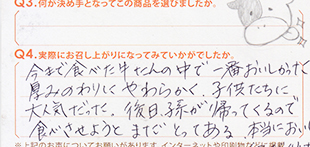 Q3.何が決め手となってこの商品を選びましたか。
Q4.実際にお召し上がりになってみていかがでしたか。
今まで食べた牛たんの中で一番おいしかった
厚みのわりにやわらかく、子供たちに
大人気だった。後日、孫が帰ってくるので
食べさせようとまだとってある 本当においし
※上記のお声についてお願いがあります。インターネットや印刷物などに掲載